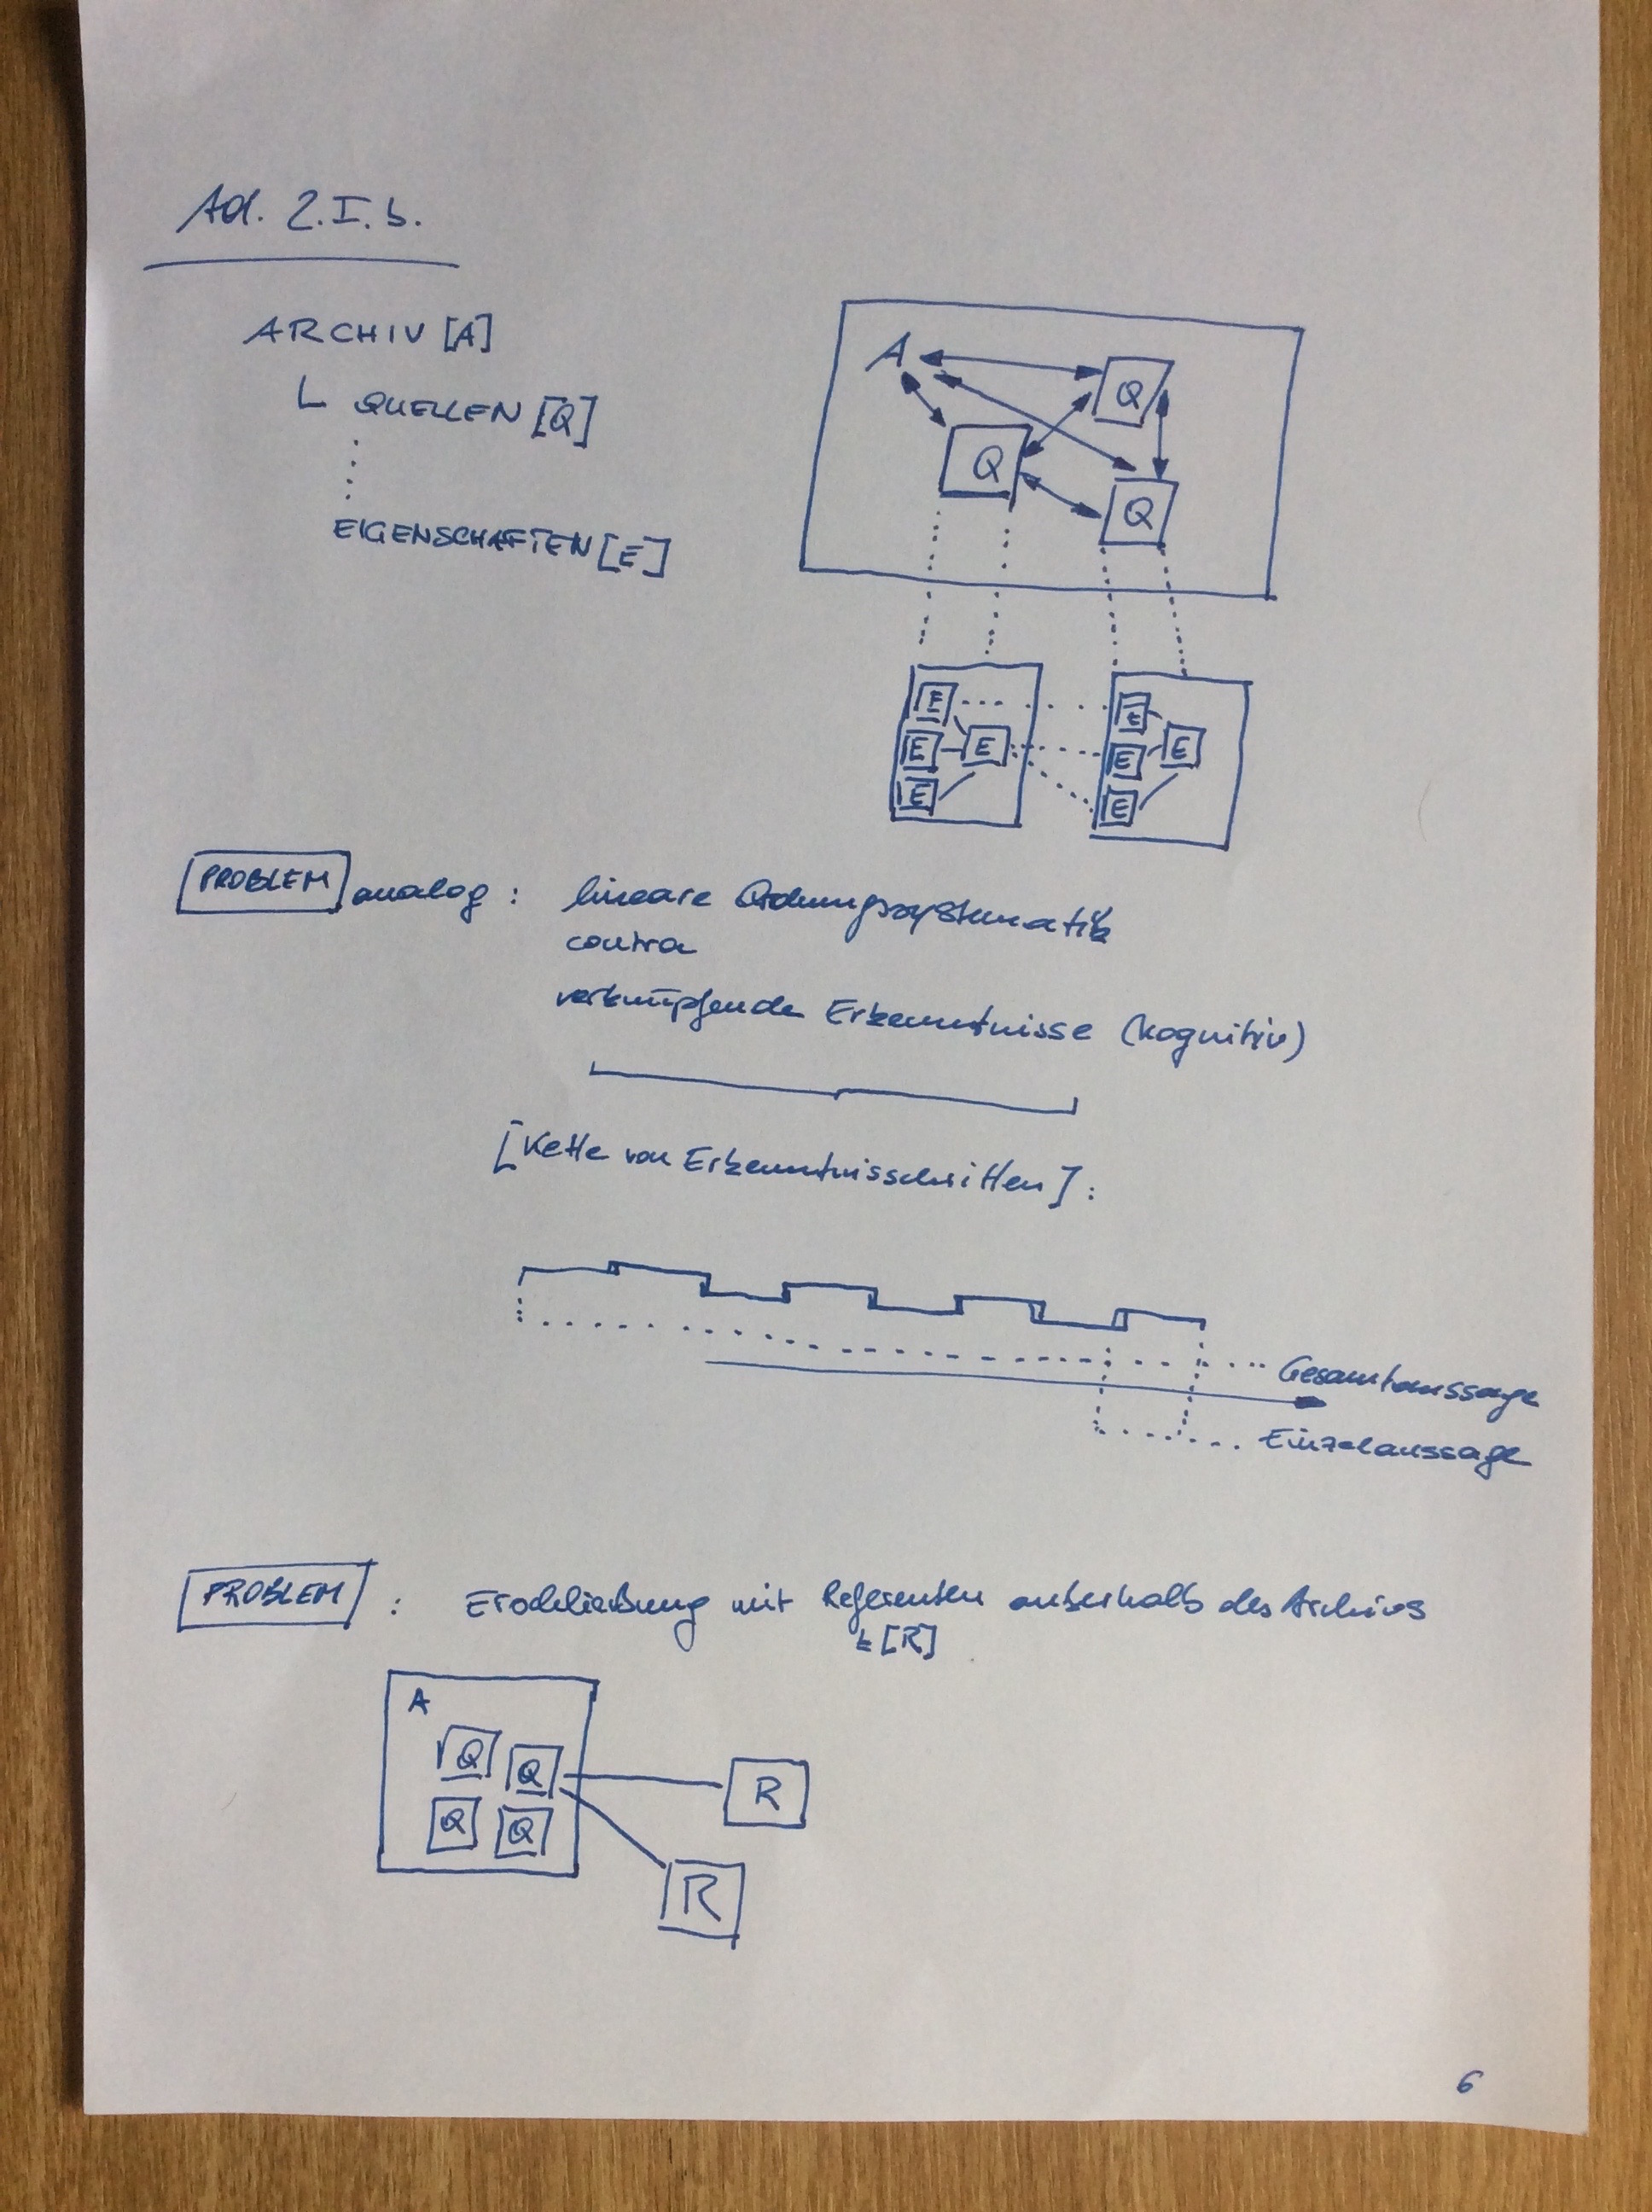 Ad. 2.I.b.
ARCHIV [A]
QUELLEN [Q]
EIGENSCHAFTEN [E]
A
Q
Q
Q
E
E
E
E
E
E
E
E
PROBLEM analog : lineare Ordnungssystematik
contra
verknüpfende Erkenntnisse (kognitiv)
[Kette von Erkenntnisschritten] :
Gesamtaussage
Einzelaussage
PROBLEM : Erschließung mit Referenten außerhalb des Archivs
[R]
A
Q
Q
Q
Q
R
R
6